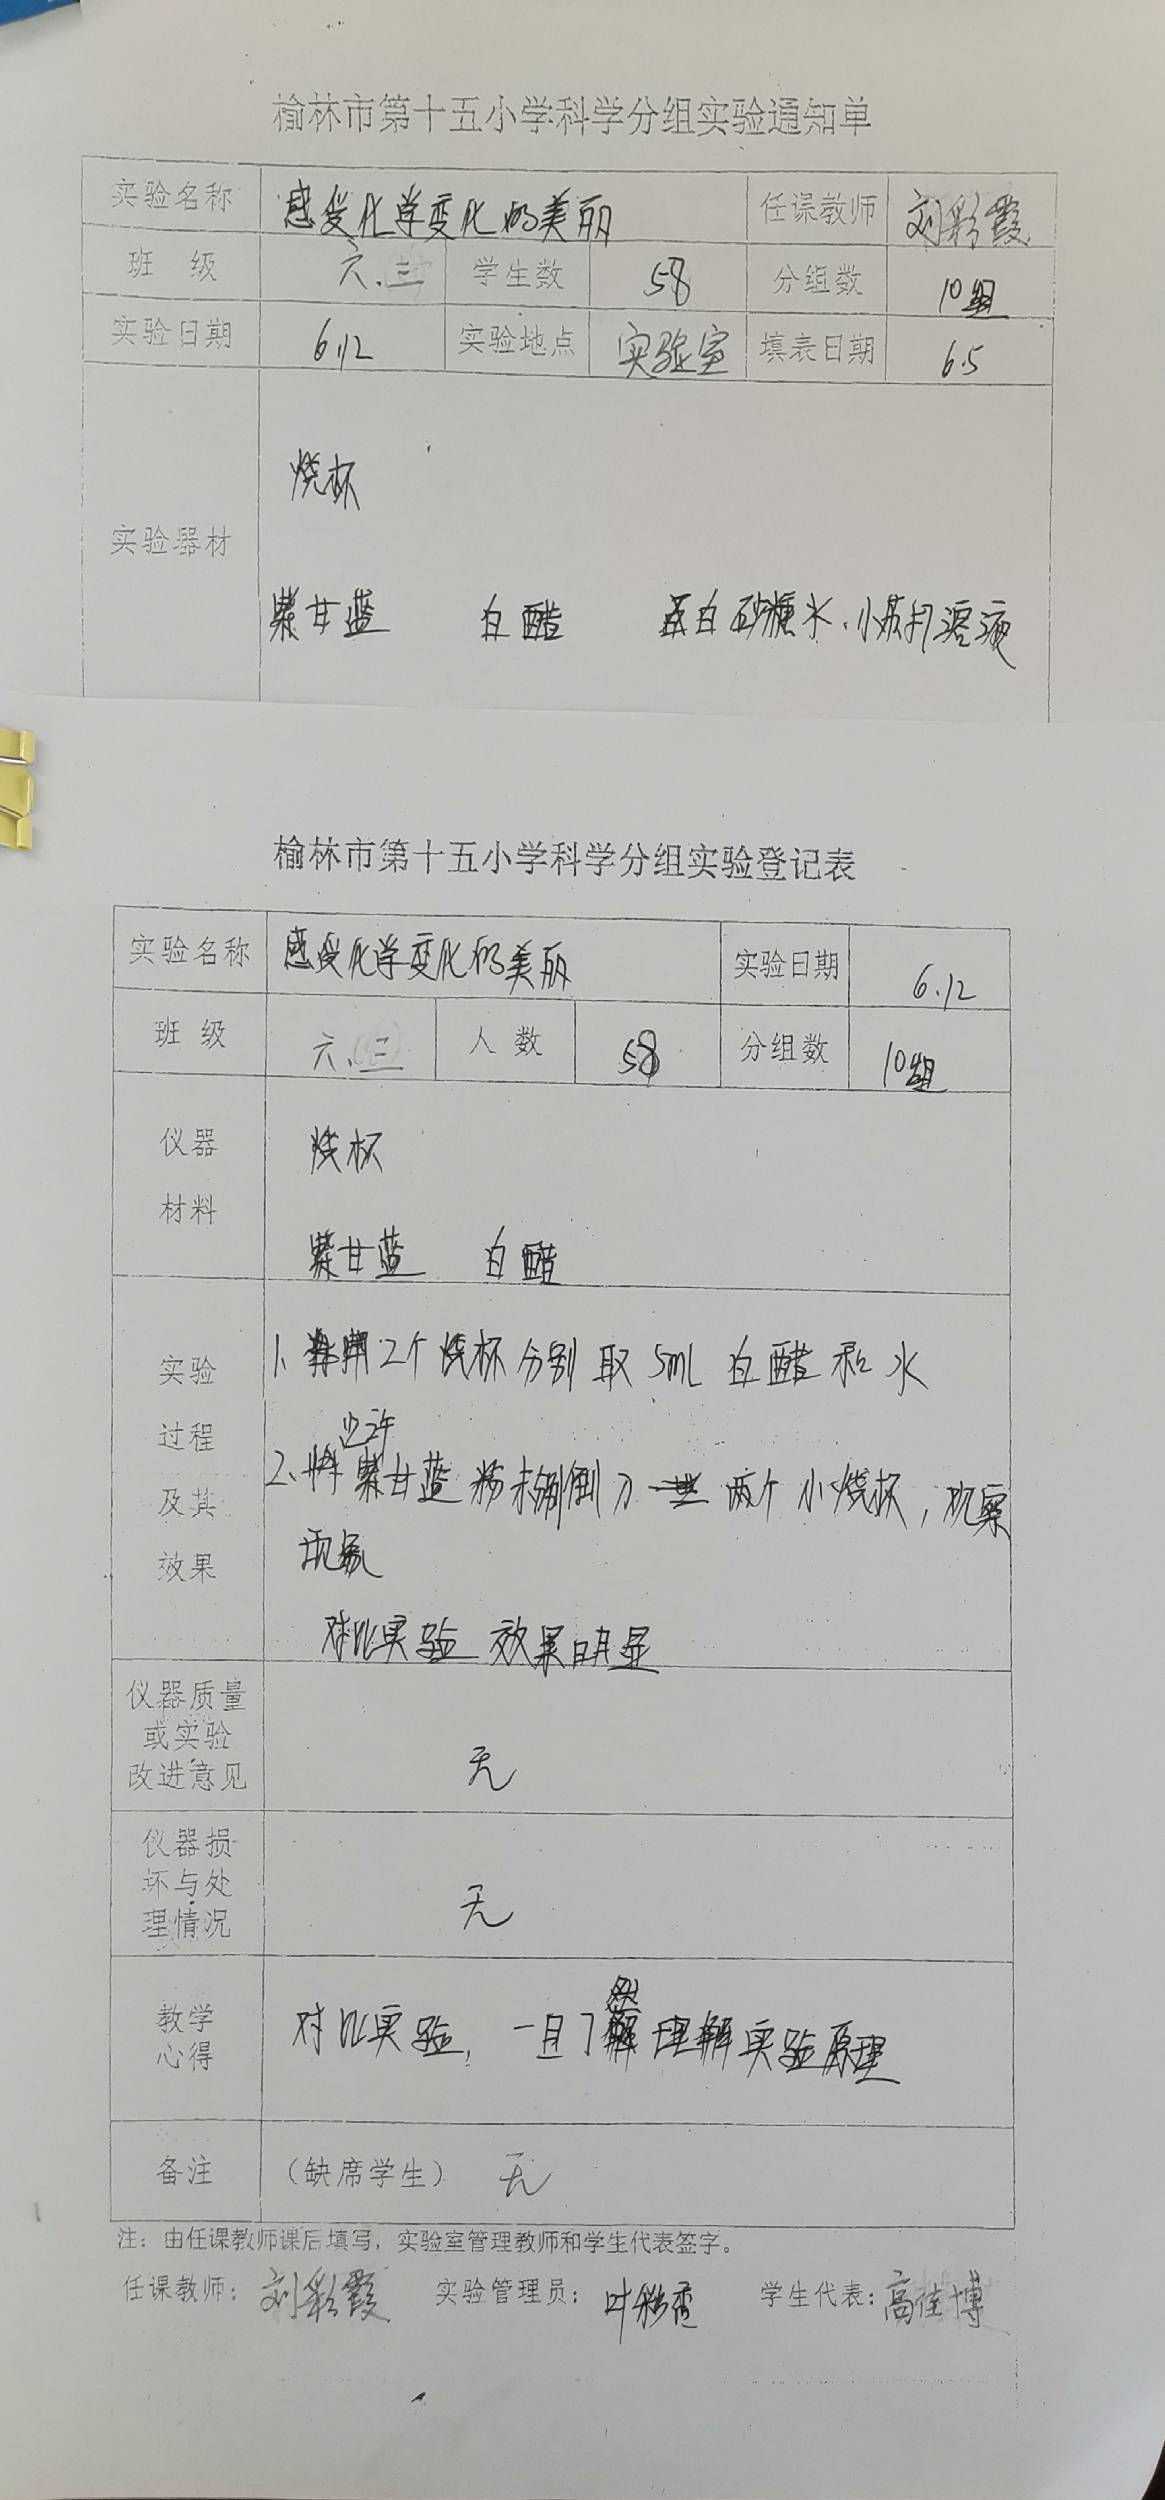 榆林市第十五小学科学分组实验通知单
实验名称 感受化学变化的美丽 任课教师 刘彩霞
班 级 六.三 学生数 58 分组数 10组
实验日期 6.12 实验地点 实验室 填表日期 6.5
烧杯
实验器材
紫甘蓝 白醋 白砂糖水、小苏打溶液
榆林市第十五小学科学分组实验登记表
实验名称 感受化学变化的美丽 实验日期 6.12
班 级 六、三 人 数 58 分组数 10组
仪器 烧杯
材料
紫甘蓝 白醋
实验 1、用2个烧杯分别取5mL白醋和水
过程 少许
及其 2、将紫甘蓝粉末倒入两个小烧杯,观察
效果 现象
对比实验 效果明显
仪器质量
或实验
改进意见 无
仪器损
坏与处
理情况 无
教学
心得 对比实验,一目了然理解实验原理
备注 (缺席学生) 无
注:由任课教师课后填写,实验室管理教师和学生代表签字。
任课教师:刘彩霞 实验管理员: 学生代表:高佳博